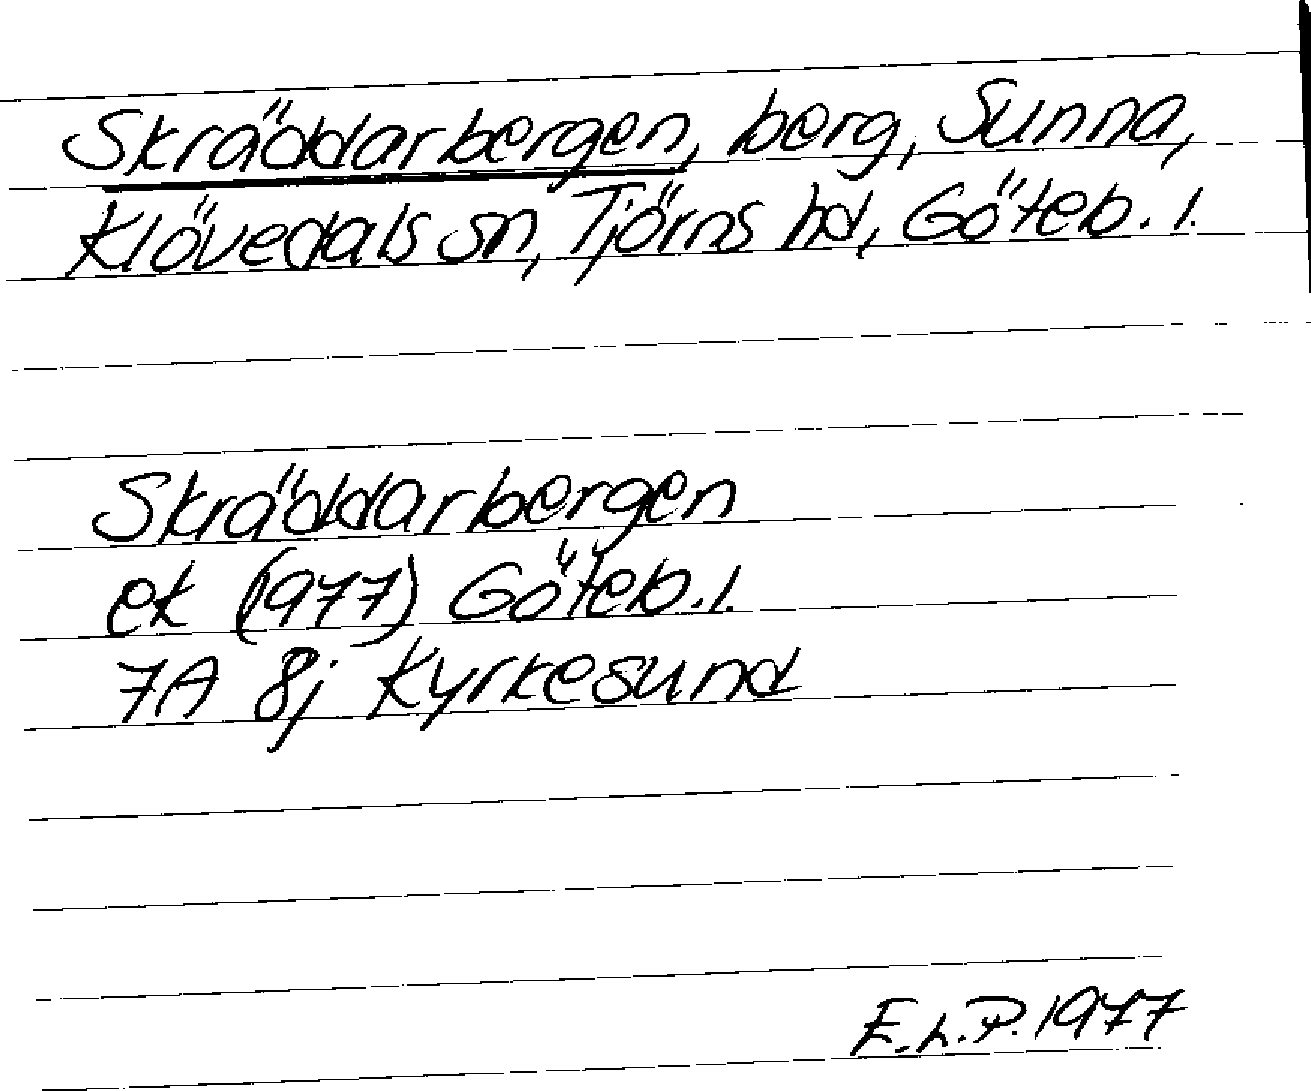 Skräddarbergen, berg, Sunna,
Klövedals sn, Tjörns hd, Göteb. l.
Skräddarbergen
ek (1977) Göteb. l.
7A 8j Kyrkesund
E.L.P. 1977